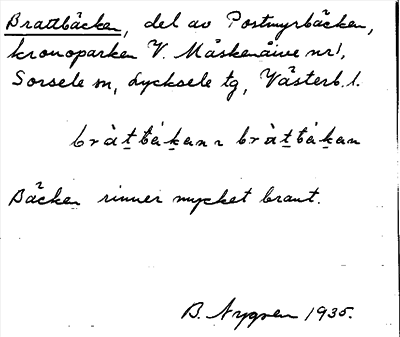 Brattbäcken, del av Postmyrbäcken,
kronoparken V. Måskenåive nr 1,
Sorsele sn, Lycksele tg, Västerb. l.
bràt̲tbäk̲an ~ bràt̲tbäk̲an
Bäcken rinner mycket brant.
B. Nygren 1935.